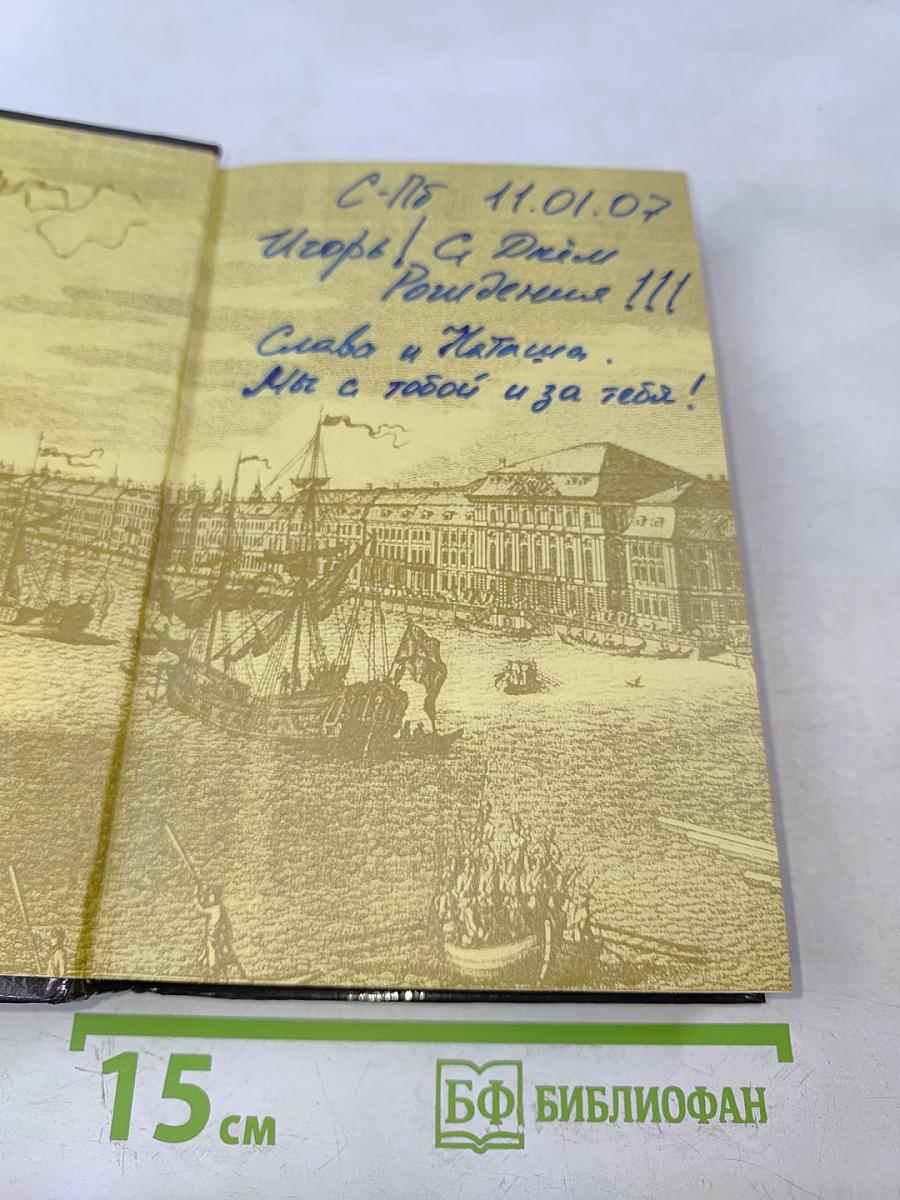 С-Пб 11.01.07
Игорь! С Днём
Рождения!!!
Слава и Наташа.
Мы с тобой и за тебя!
15 см
БФ БИБЛИОФАН